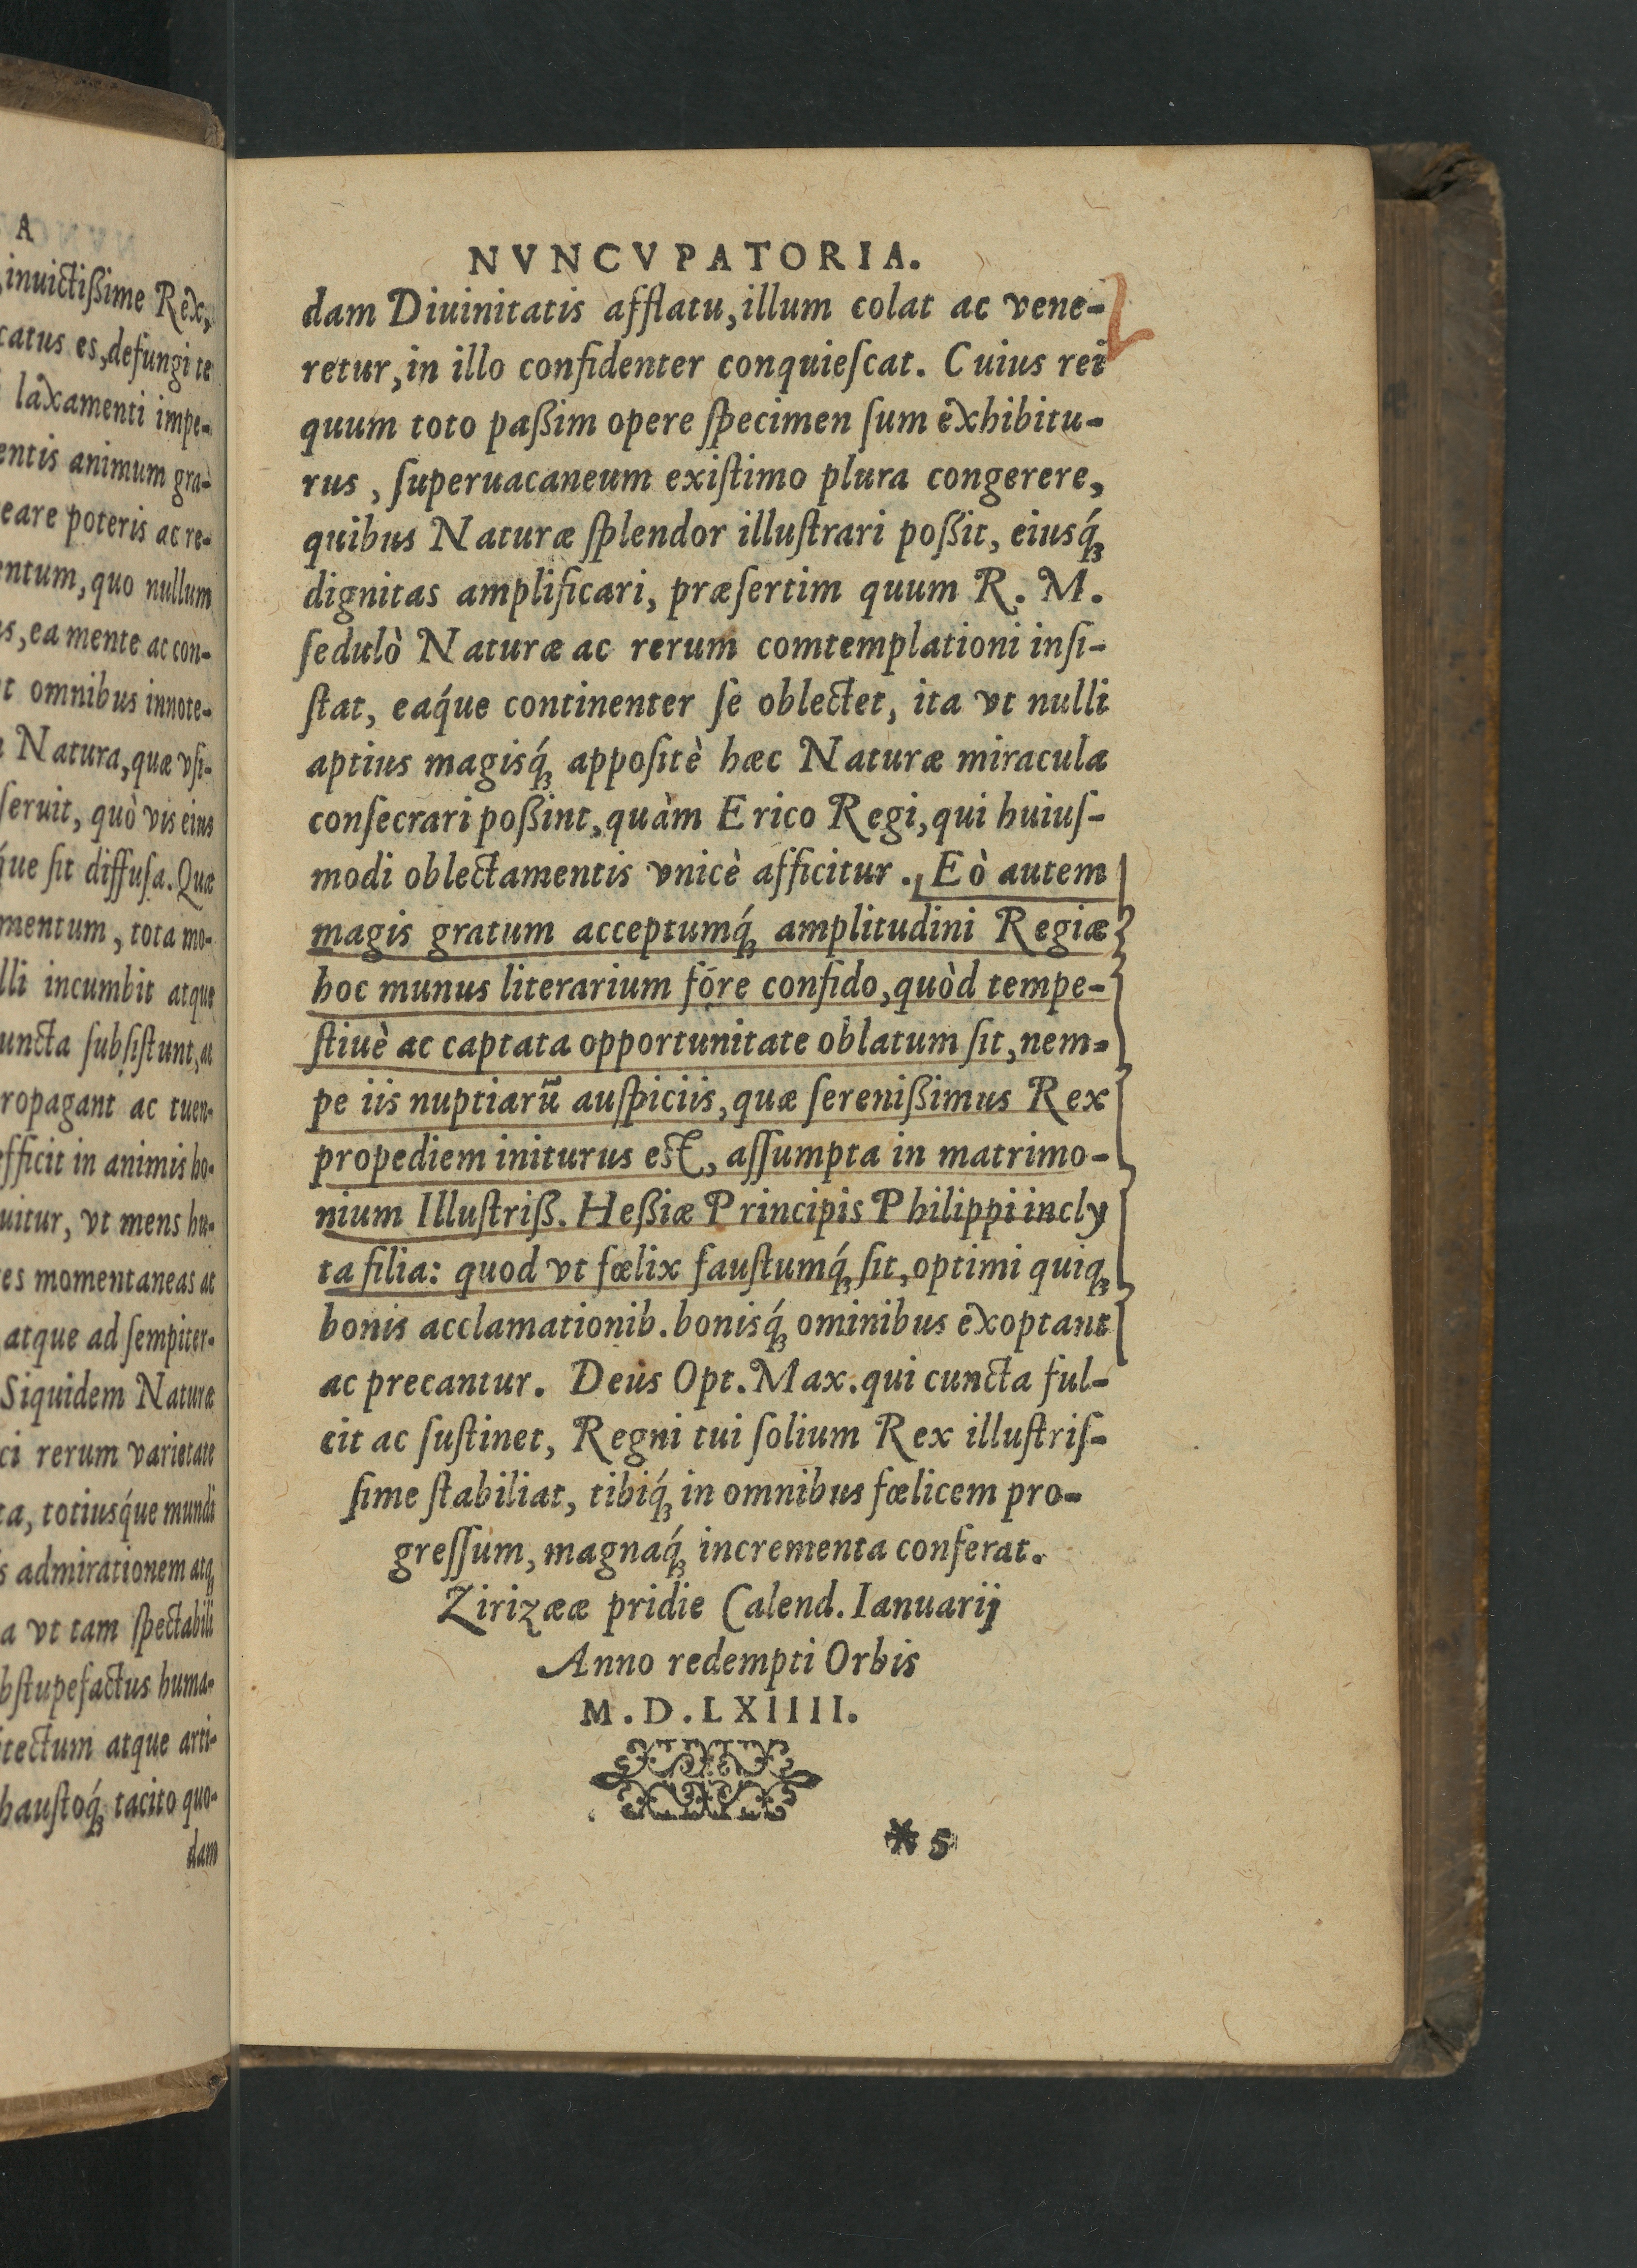 A
inuictißime Rex,
catus es, defungi te
laxamenti impe-
entis animum gra-
eare poteris ac re-
entum, quo nullum
s, ea mente ac con-
t omnibus innote-
Natura, quæ vsi-
seruit, quò vis eius
q́ue sit diffusa. Quæ
mentum, tota mo-
lli incumbit atque
uncta subsistunt, ac
ropagant ac tuen-
efficit in animis ho-
uitur, vt mens hu-
es momentaneas at
atque ad sempiter-
Siquidem Naturæ
ci rerum varietate
ta, totiusq́ue mundi
s admirationem atq;
a vt tam spectabili
bstupefactus huma-
tectum atque arti-
haustoq́; tacito quo-
dam
NVNCVPATORIA.
dam Diuinitatis afflatu, illum colat ac vene-
retur, in illo confidenter conquieſcat. Cuius rei
quum toto paßim opere ſpecimen ſum exhibitu-
rus, ſuperuacaneum exiſtimo plura congerere,
quibus Naturæ ſplendor illuſtrari poßit, eiusq́;
dignitas amplificari, præſertim quum R. M.
ſedulò Naturæ ac rerum comtemplationi inſi-
ſtat, eaq́ue continenter ſe oblectet, ita vt nulli
aptius magisq́; appoſitè hæc Naturæ miracula
conſecrari poßint, quàm Erico Regi, qui huiuſ-
modi oblectamentis vnicè afficitur. Eò autem
magis gratum acceptumq́; amplitudini Regiæ
hoc munus literarium fóre confido, quòd tempe-
ſtiuè ac captata opportunitate oblatum ſit, nem-
pe iis nuptiarū auſpiciis, quæ ſerenißimus Rex
propediem initurus est, aſſumpta in matrimo-
nium Illuſtriß. Heßiæ Principis Philippi incly
ta filia: quod vt fœlix fauſtumq́; ſit, optimi quiq;
bonis acclamationib. bonisq́; ominibus exoptant
ac precantur. Deus Opt. Max. qui cuncta ful-
cit ac ſuſtinet, Regni tui ſolium Rex illuſtriſ-
ſime ſtabiliat, tibiq́; in omnibus fœlicem pro-
greſſum, magnaq́; incrementa conferat.
Zirizææ pridie Calend. Ianuarij
Anno redempti Orbis
M.D.LXIIII.
* 5